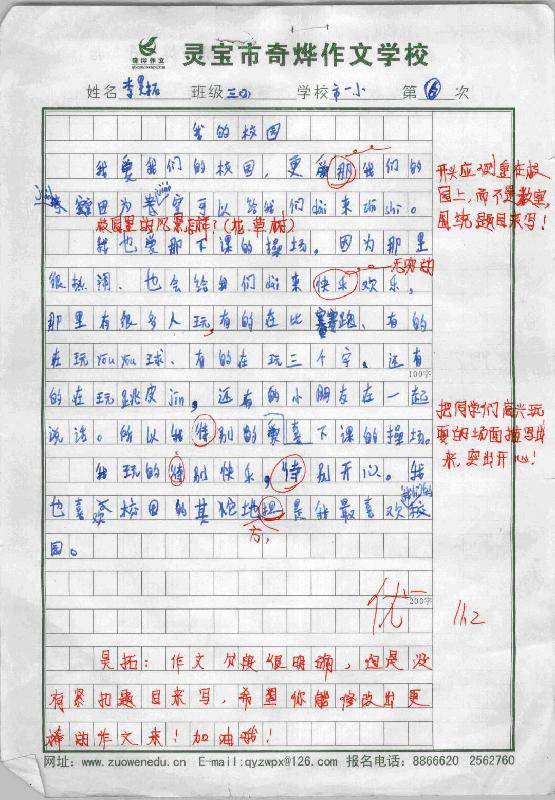 奇烨作文
灵宝市奇烨作文学校
姓名 李昊拓 班级 三 学校 市一小 第 6 次
我的校园
我爱我们的校园,更 那我们的
因为 可以给我们dài来zhī shi。
校园里的风景怎样?(花草树)
我也爱那下课的操场。因为那里
很热闹、也会给我们dài来快乐欢乐,
那里有很多人玩,有的在比赛跑、有的
在玩YouYou球、有的在玩三个字,还有
100字
的在玩跳皮jin,还有的小朋友在一起
说话。所以我待别的喜下课的操场。
我玩的待别快乐,待别开心。我
也喜欢校园的其他地担是我最喜欢我们的校
方,
园。
开头应侧重在校
园上,而不是教室,
围绕题目来写!
把同学们高兴玩
耍的场面描写出
来,突出开心!
优
200字
昊拓:作文分段很明确,但是没
有紧扣题目来写,希望你能修改出更
棒的作文来!加油哦!
网址:www.zuowenedu.cn E-mail:qyzwpx@126.com 报名电话:8866620 2562760